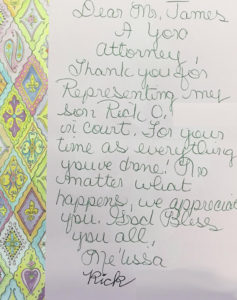 Dear Mr. James
A Yoo
Attorney,
Thank you for
Representing my
son Rick O.
in court. For your
time as everything
you've done! No
matter what
happens, we appreciate
you. God Bless
you all,
Me'lissa
Rick